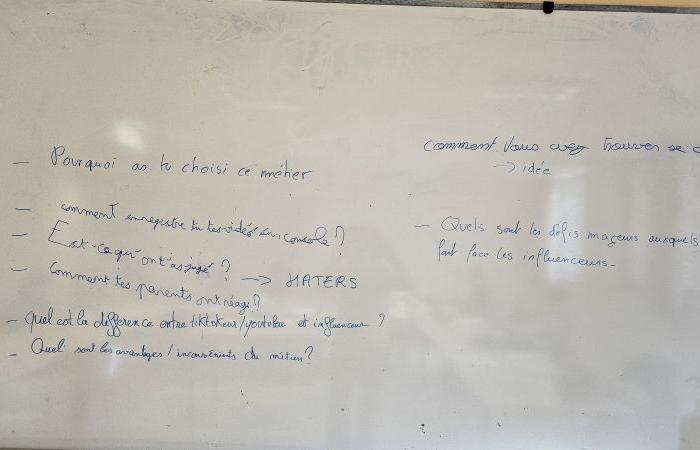 — Pourquoi as-tu choisi ce métier
— comment enregistre tu tes vidéos sur console ?
— Est-ce qu'ont t'as jugé ? → HATERS
— Comment tes parents ont réagi ?
— Quel est la différence entre tiktokeur/youtubeur et influenceur ?
— Quel sont les avantages / inconvénients du métier ?
Comment vous avez trouver se
→ idée
— Quels sont les défis majeurs auxquels
font face les influenceurs.